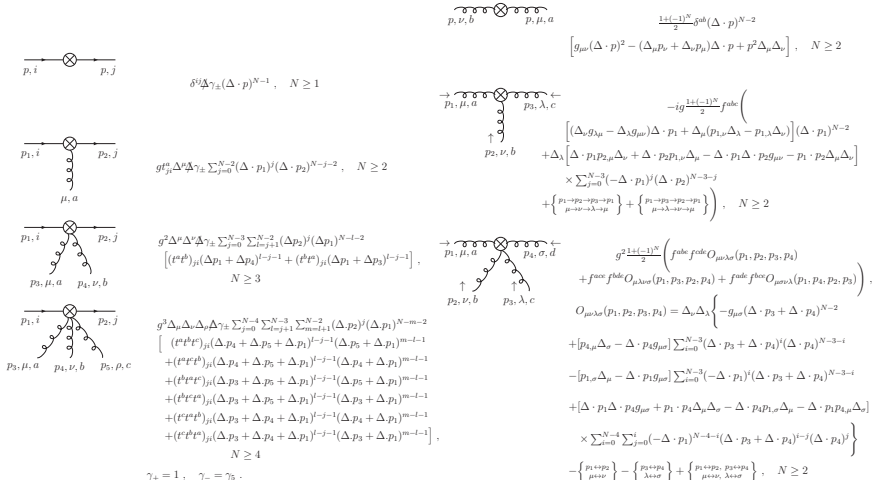 p, i p, j
δ^{ij} Δ̸ γ_± (Δ · p)^{N−1} , N ≥ 1
p_1, i p_2, j
μ, a
g t^a_{ji} Δ^μ Δ̸ γ_± ∑_{j=0}^{N−2} (Δ · p_1)^j (Δ · p_2)^{N−j−2} , N ≥ 2
p_1, i p_2, j
p_3, μ, a p_4, ν, b
g^2 Δ^μ Δ^ν Δ̸ γ_± ∑_{j=0}^{N−3} ∑_{l=j+1}^{N−2} (Δp_2)^j (Δp_1)^{N−l−2}
[ (t^a t^b)_{ji} (Δp_1 + Δp_4)^{l−j−1} + (t^b t^a)_{ji} (Δp_1 + Δp_3)^{l−j−1} ] ,
N ≥ 3
p_1, i p_2, j
p_3, μ, a p_4, ν, b p_5, ρ, c
g^3 Δ_μ Δ_ν Δ_ρ Δ̸ γ_± ∑_{j=0}^{N−4} ∑_{l=j+1}^{N−3} ∑_{m=l+1}^{N−2} (Δ.p_2)^j (Δ.p_1)^{N−m−2}
[ (t^a t^b t^c)_{ji} (Δ.p_4 + Δ.p_5 + Δ.p_1)^{l−j−1} (Δ.p_5 + Δ.p_1)^{m−l−1}
+(t^a t^c t^b)_{ji} (Δ.p_4 + Δ.p_5 + Δ.p_1)^{l−j−1} (Δ.p_4 + Δ.p_1)^{m−l−1}
+(t^b t^a t^c)_{ji} (Δ.p_3 + Δ.p_5 + Δ.p_1)^{l−j−1} (Δ.p_5 + Δ.p_1)^{m−l−1}
+(t^b t^c t^a)_{ji} (Δ.p_3 + Δ.p_5 + Δ.p_1)^{l−j−1} (Δ.p_3 + Δ.p_1)^{m−l−1}
+(t^c t^a t^b)_{ji} (Δ.p_3 + Δ.p_4 + Δ.p_1)^{l−j−1} (Δ.p_4 + Δ.p_1)^{m−l−1}
+(t^c t^b t^a)_{ji} (Δ.p_3 + Δ.p_4 + Δ.p_1)^{l−j−1} (Δ.p_3 + Δ.p_1)^{m−l−1} ] ,
N ≥ 4
γ_+ = 1 , γ_− = γ_5 .
p, ν, b p, μ, a
\frac{1+(−1)^N}{2} δ^{ab} (Δ · p)^{N−2}
[ g_{μν} (Δ · p)^2 − (Δ_μ p_ν + Δ_ν p_μ) Δ · p + p^2 Δ_μ Δ_ν ] , N ≥ 2
→ p_1, μ, a p_3, λ, c ←
↑ p_2, ν, b
−ig \frac{1+(−1)^N}{2} f^{abc} (
[ (Δ_ν g_{λμ} − Δ_λ g_{μν}) Δ · p_1 + Δ_μ (p_{1,ν} Δ_λ − p_{1,λ} Δ_ν) ] (Δ · p_1)^{N−2}
+Δ_λ [ Δ · p_1 p_{2,μ} Δ_ν + Δ · p_2 p_{1,ν} Δ_μ − Δ · p_1 Δ · p_2 g_{μν} − p_1 · p_2 Δ_μ Δ_ν ]
× ∑_{j=0}^{N−3} (−Δ · p_1)^j (Δ · p_2)^{N−3−j}
+ { p_1→p_2→p_3→p_1 μ→ν→λ→μ } + { p_1→p_3→p_2→p_1 μ→λ→ν→μ } ) , N ≥ 2
→ p_1, μ, a p_4, σ, d ←
↑ p_2, ν, b ↑ p_3, λ, c
g^2 \frac{1+(−1)^N}{2} ( f^{abe} f^{cde} O_{μνλσ}(p_1, p_2, p_3, p_4)
+f^{ace} f^{bde} O_{μλνσ}(p_1, p_3, p_2, p_4) + f^{ade} f^{bce} O_{μσνλ}(p_1, p_4, p_2, p_3) ) ,
O_{μνλσ}(p_1, p_2, p_3, p_4) = Δ_ν Δ_λ { −g_{μσ} (Δ · p_3 + Δ · p_4)^{N−2}
+[p_{4,μ} Δ_σ − Δ · p_4 g_{μσ}] ∑_{i=0}^{N−3} (Δ · p_3 + Δ · p_4)^i (Δ · p_4)^{N−3−i}
−[p_{1,σ} Δ_μ − Δ · p_1 g_{μσ}] ∑_{i=0}^{N−3} (−Δ · p_1)^i (Δ · p_3 + Δ · p_4)^{N−3−i}
+[Δ · p_1 Δ · p_4 g_{μσ} + p_1 · p_4 Δ_μ Δ_σ − Δ · p_4 p_{1,σ} Δ_μ − Δ · p_1 p_{4,μ} Δ_σ]
× ∑_{i=0}^{N−4} ∑_{j=0}^{i} (−Δ · p_1)^{N−4−i} (Δ · p_3 + Δ · p_4)^{i−j} (Δ · p_4)^j }
− { p_1↔p_2 μ↔ν } − { p_3↔p_4 λ↔σ } + { p_1↔p_2, p_3↔p_4 μ↔ν, λ↔σ } , N ≥ 2